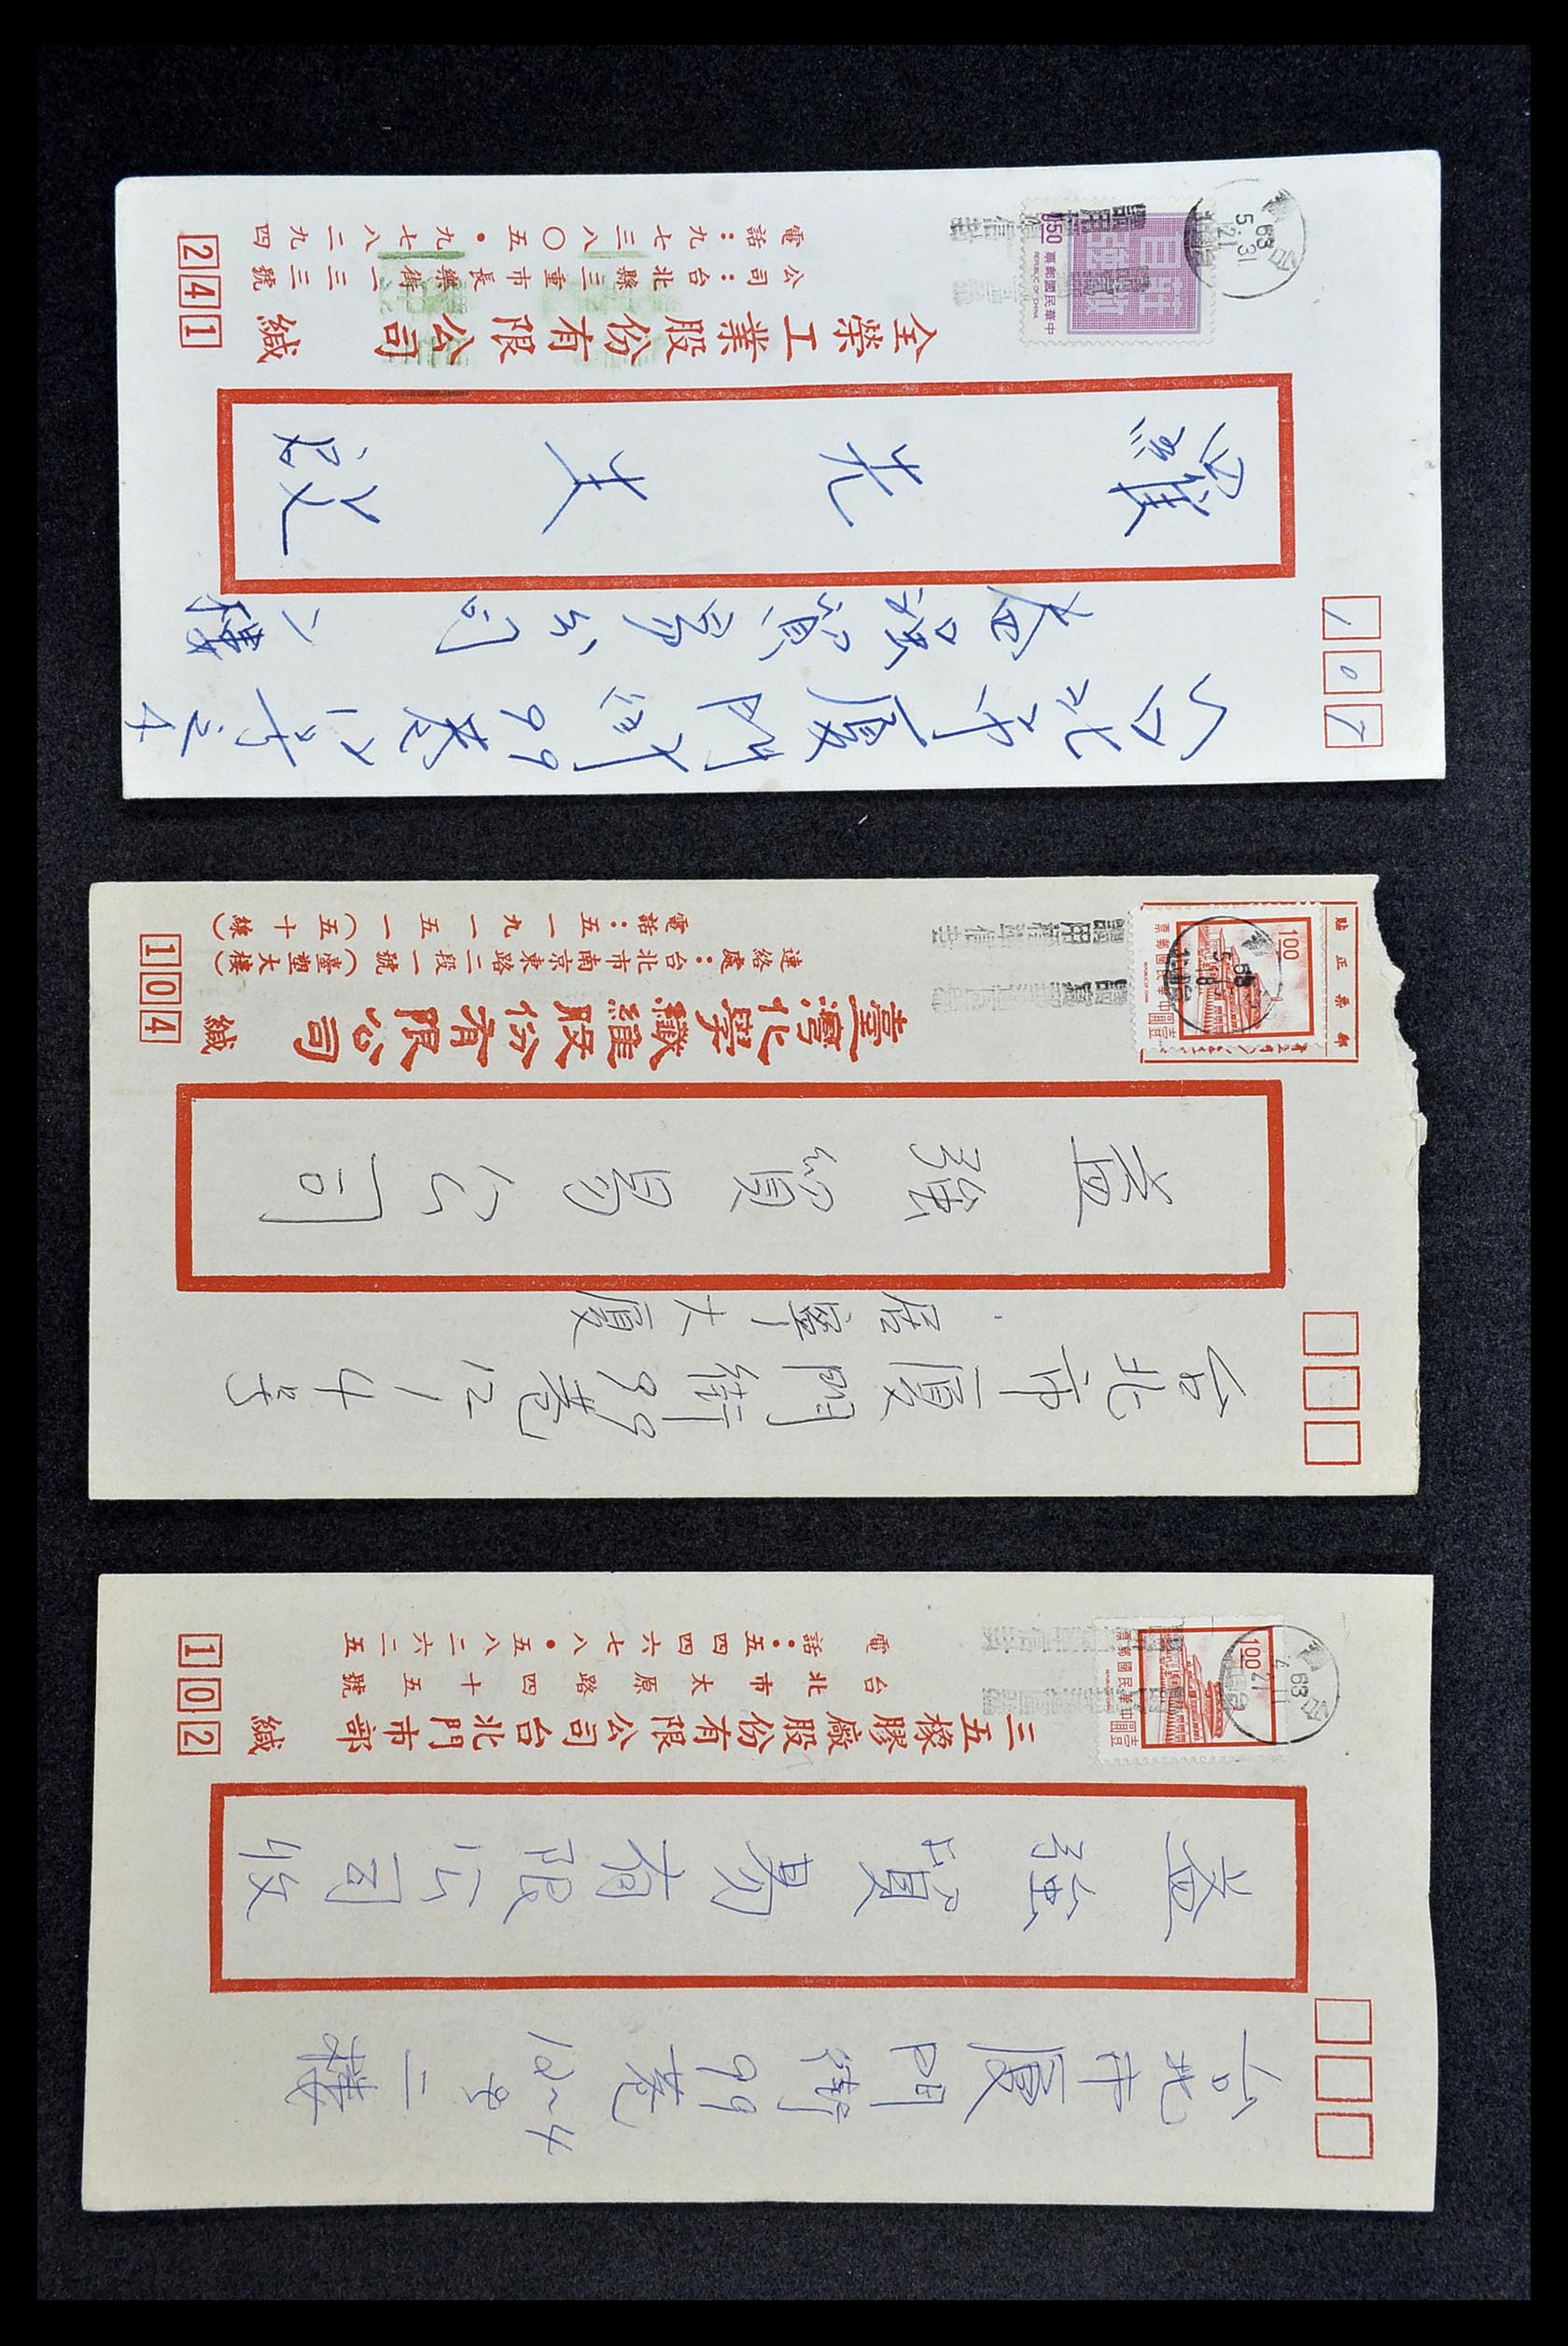 107
台北市厦門街99巷12号之4
益強貿易公司 二樓
羅先生 啟
金榮工業股份有限公司 緘
公司：台北縣三重市長樂街一二三三號
電話：九七三八〇五・九七八二九四
241
0.50
莊敬自強
中華民國郵票
REPUBLIC OF CHINA
63
5.31
21
請用
台北市厦門街99巷12/4号
居寧大厦
益強貿易公司
臺灣化學纖維股份有限公司 緘
連絡處：台北市南京東路二段一號（臺塑大樓）
電話：五一九一五五一（五十線）
104
貼正票郵
100
中華民國郵票
63
5
18
請用
台北市厦門街99巷12~4号二樓
益強貿易有限公司收
三五橡膠廠股份有限公司台北門市部 緘
台北市太原路四十五號
電話：五四四六七八・五八二六二五
102
100
中華民國郵票
63
4
21